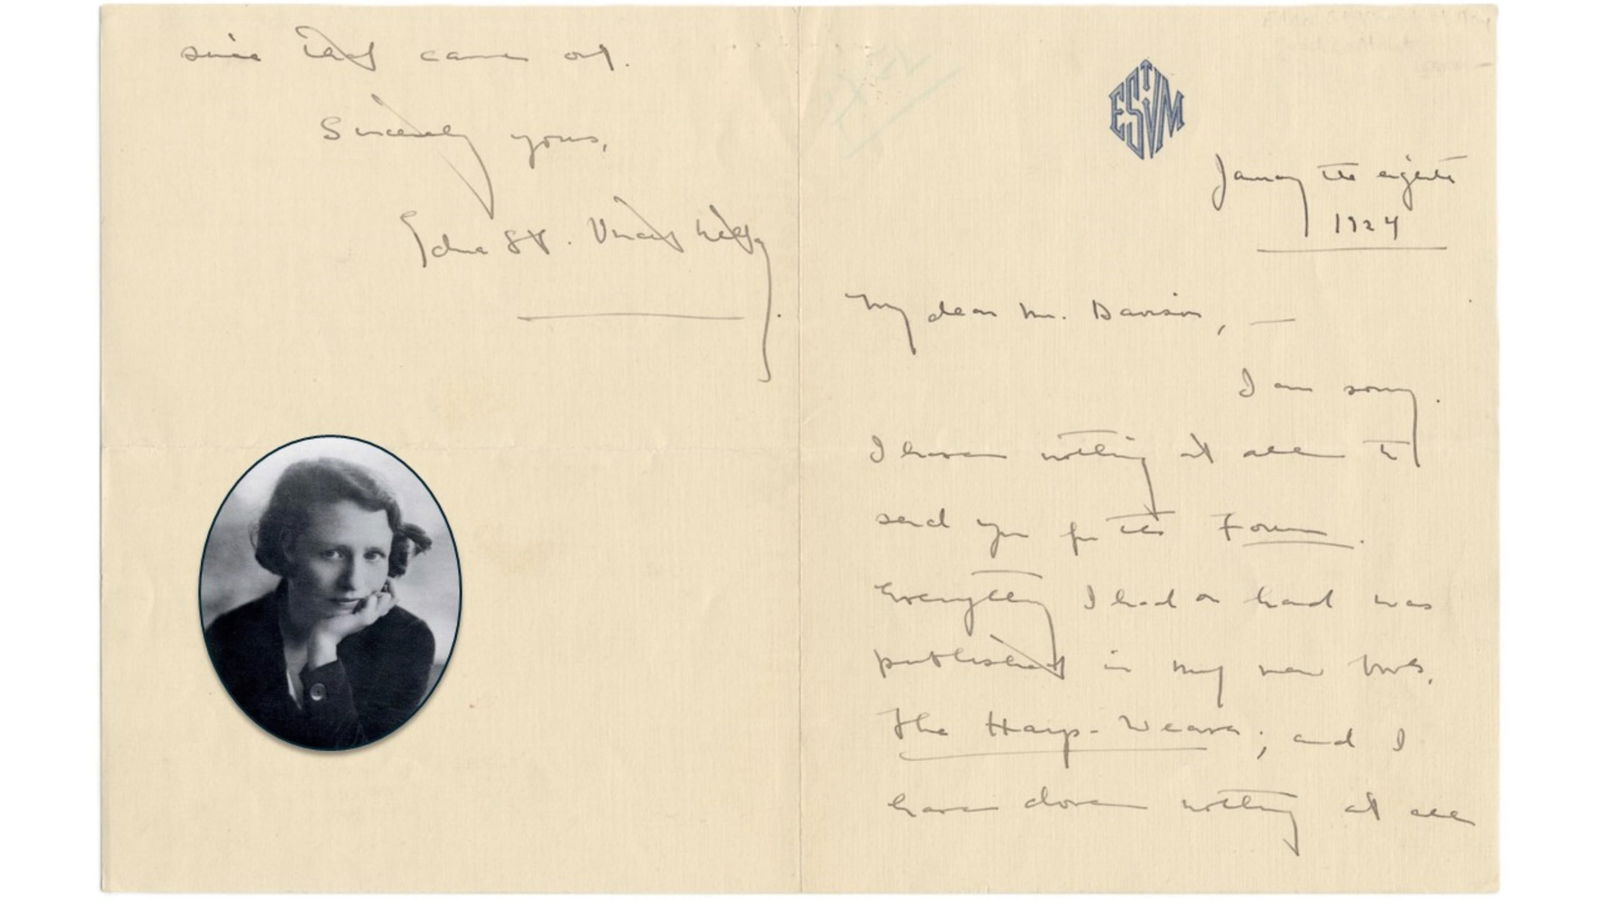 ESTVM
January the eighth
1924
My dear Mr. Davison, —
I am sorry.
I have nothing at all to
send you for the Forum.
Everything I had on hand was
published in my new book,
The Harp-Weaver; and I
have done nothing at all
since that came out.
Sincerely yours,
Edna St. Vincent Millay.